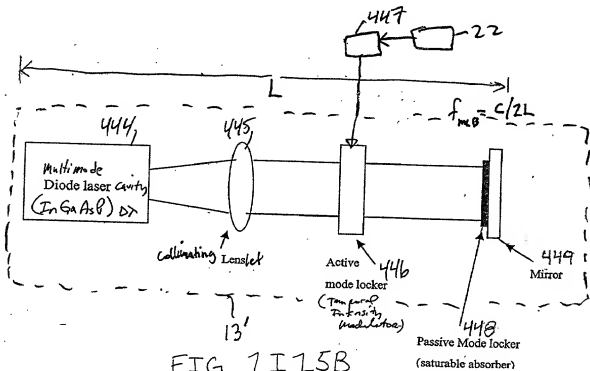 447
22
L
f_MLB = C/2L
444
445
Multimode
Diode laser cavity
(InGaAsP) Δλ
Collimating Lenslet
Active
mode locker
(Temporal
Intensity
Modulator)
446
449
Mirror
448
Passive Mode locker
(saturable absorber)
13'
FIG 1I15B